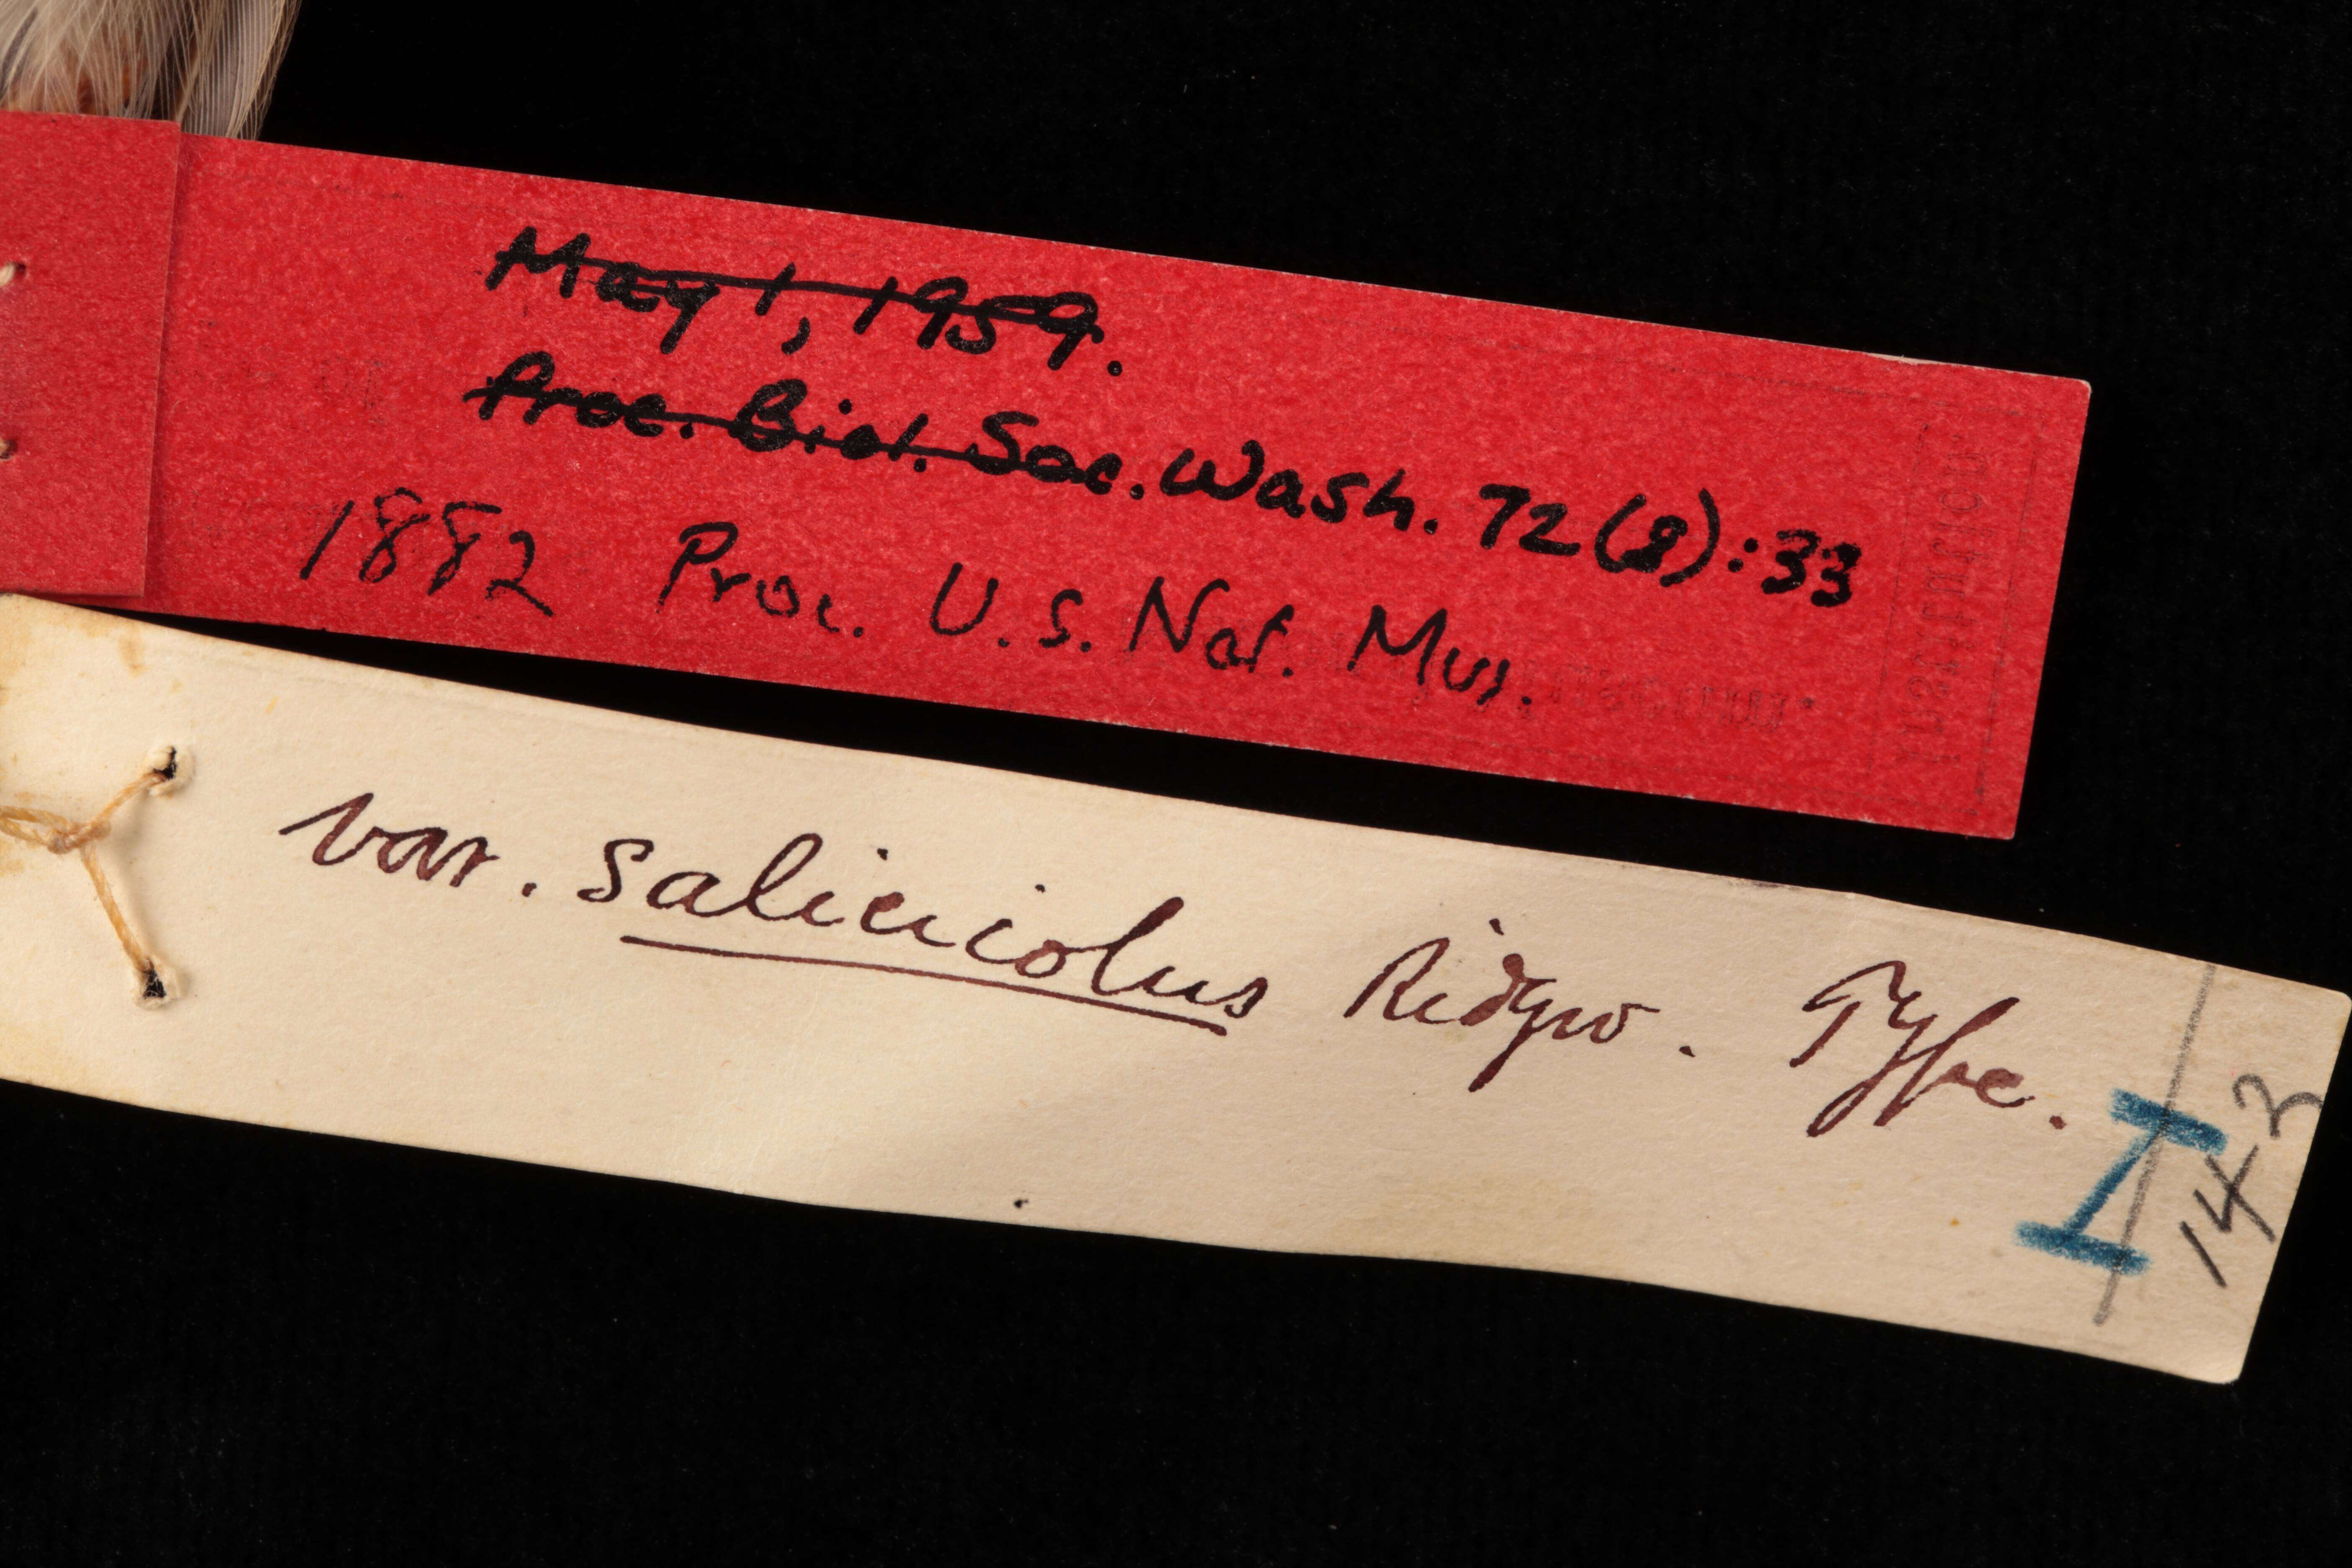 May 1, 1959.
Proc. Biol. Soc. Wash. 72(8):33
1882 Proc. U.S. Nat. Mus.
var. salicicolus Ridgw. Type.
I
143